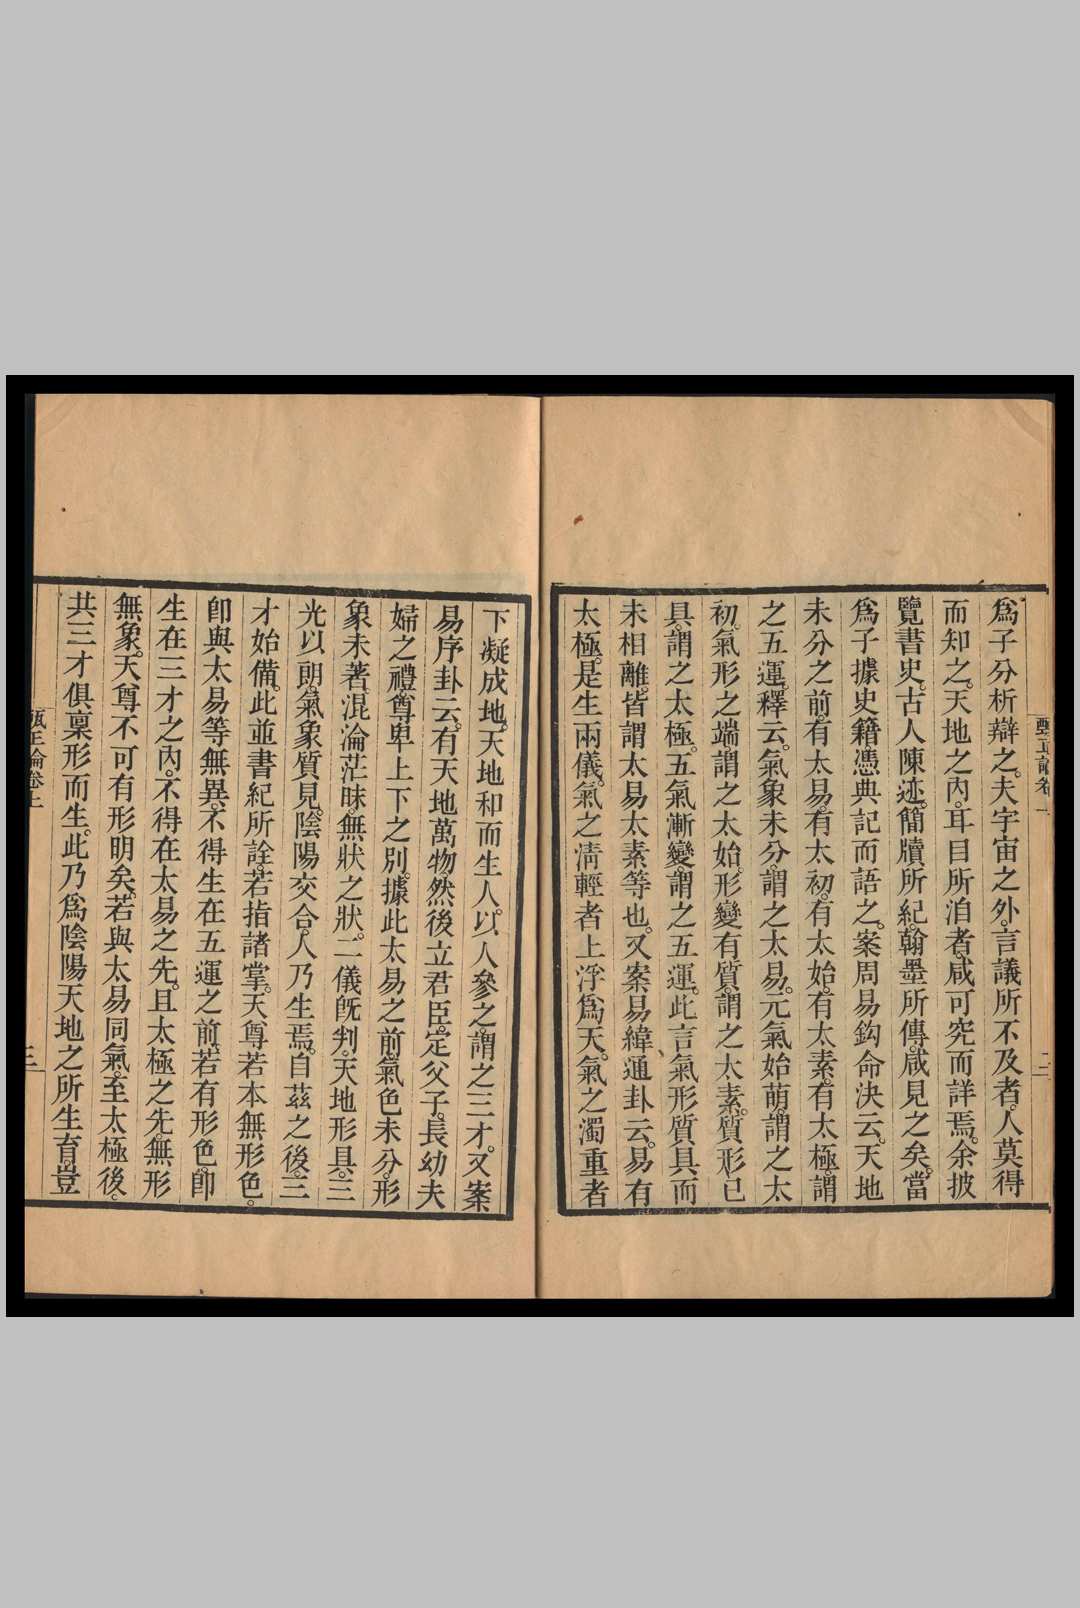 爲子分析辯之。夫宇宙之外。言議所不及者。人莫得
而知之。天地之內。耳目所洎者。咸可究而詳焉。余披
覽書史。古人陳迹。簡牘所紀。翰墨所傳。咸見之矣。當
爲子據史籍憑典記而語之。案周易鈎命決云。天地
未分之前。有太易。有太初。有太始。有太素。有太極。謂
之五運。釋云。氣象未分。謂之太易。元氣始萌。謂之太
初。氣形之端。謂之太始。形變有質。謂之太素。質形已
具。謂之太極。五氣漸變。謂之五運。此言氣形質具而
未相離。皆謂太易太素等也。又案易緯通卦云。易有
太極。是生兩儀。氣之淸輕者上浮爲天。氣之濁重者
下凝成地。天地和而生人。以人參之。謂之三才。又案
易序卦云。有天地萬物。然後立君臣。定父子。長幼夫
婦之禮。尊卑上下之別。據此太易之前。氣色未分。形
象未著。混淪茫昧。無狀之狀。二儀旣判。天地形具。三
光以朗。氣象質見。陰陽交合。人乃生焉。自茲之後。三
才始備。此並書紀所詮。若指諸掌。天尊若本無形色。
卽與太易等無異。不得生在五運之前。若有形色。卽
生在三才之內。不得在太易之先。且太極之先。無形
無象。天尊不可有形明矣。若與太易同氣。至太極後。
共三才俱稟形而生。此乃爲陰陽天地之所生育。豈
甄正論卷上
三